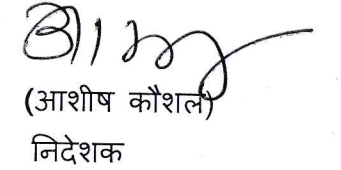 (आशीष कौशल)
निदेशक